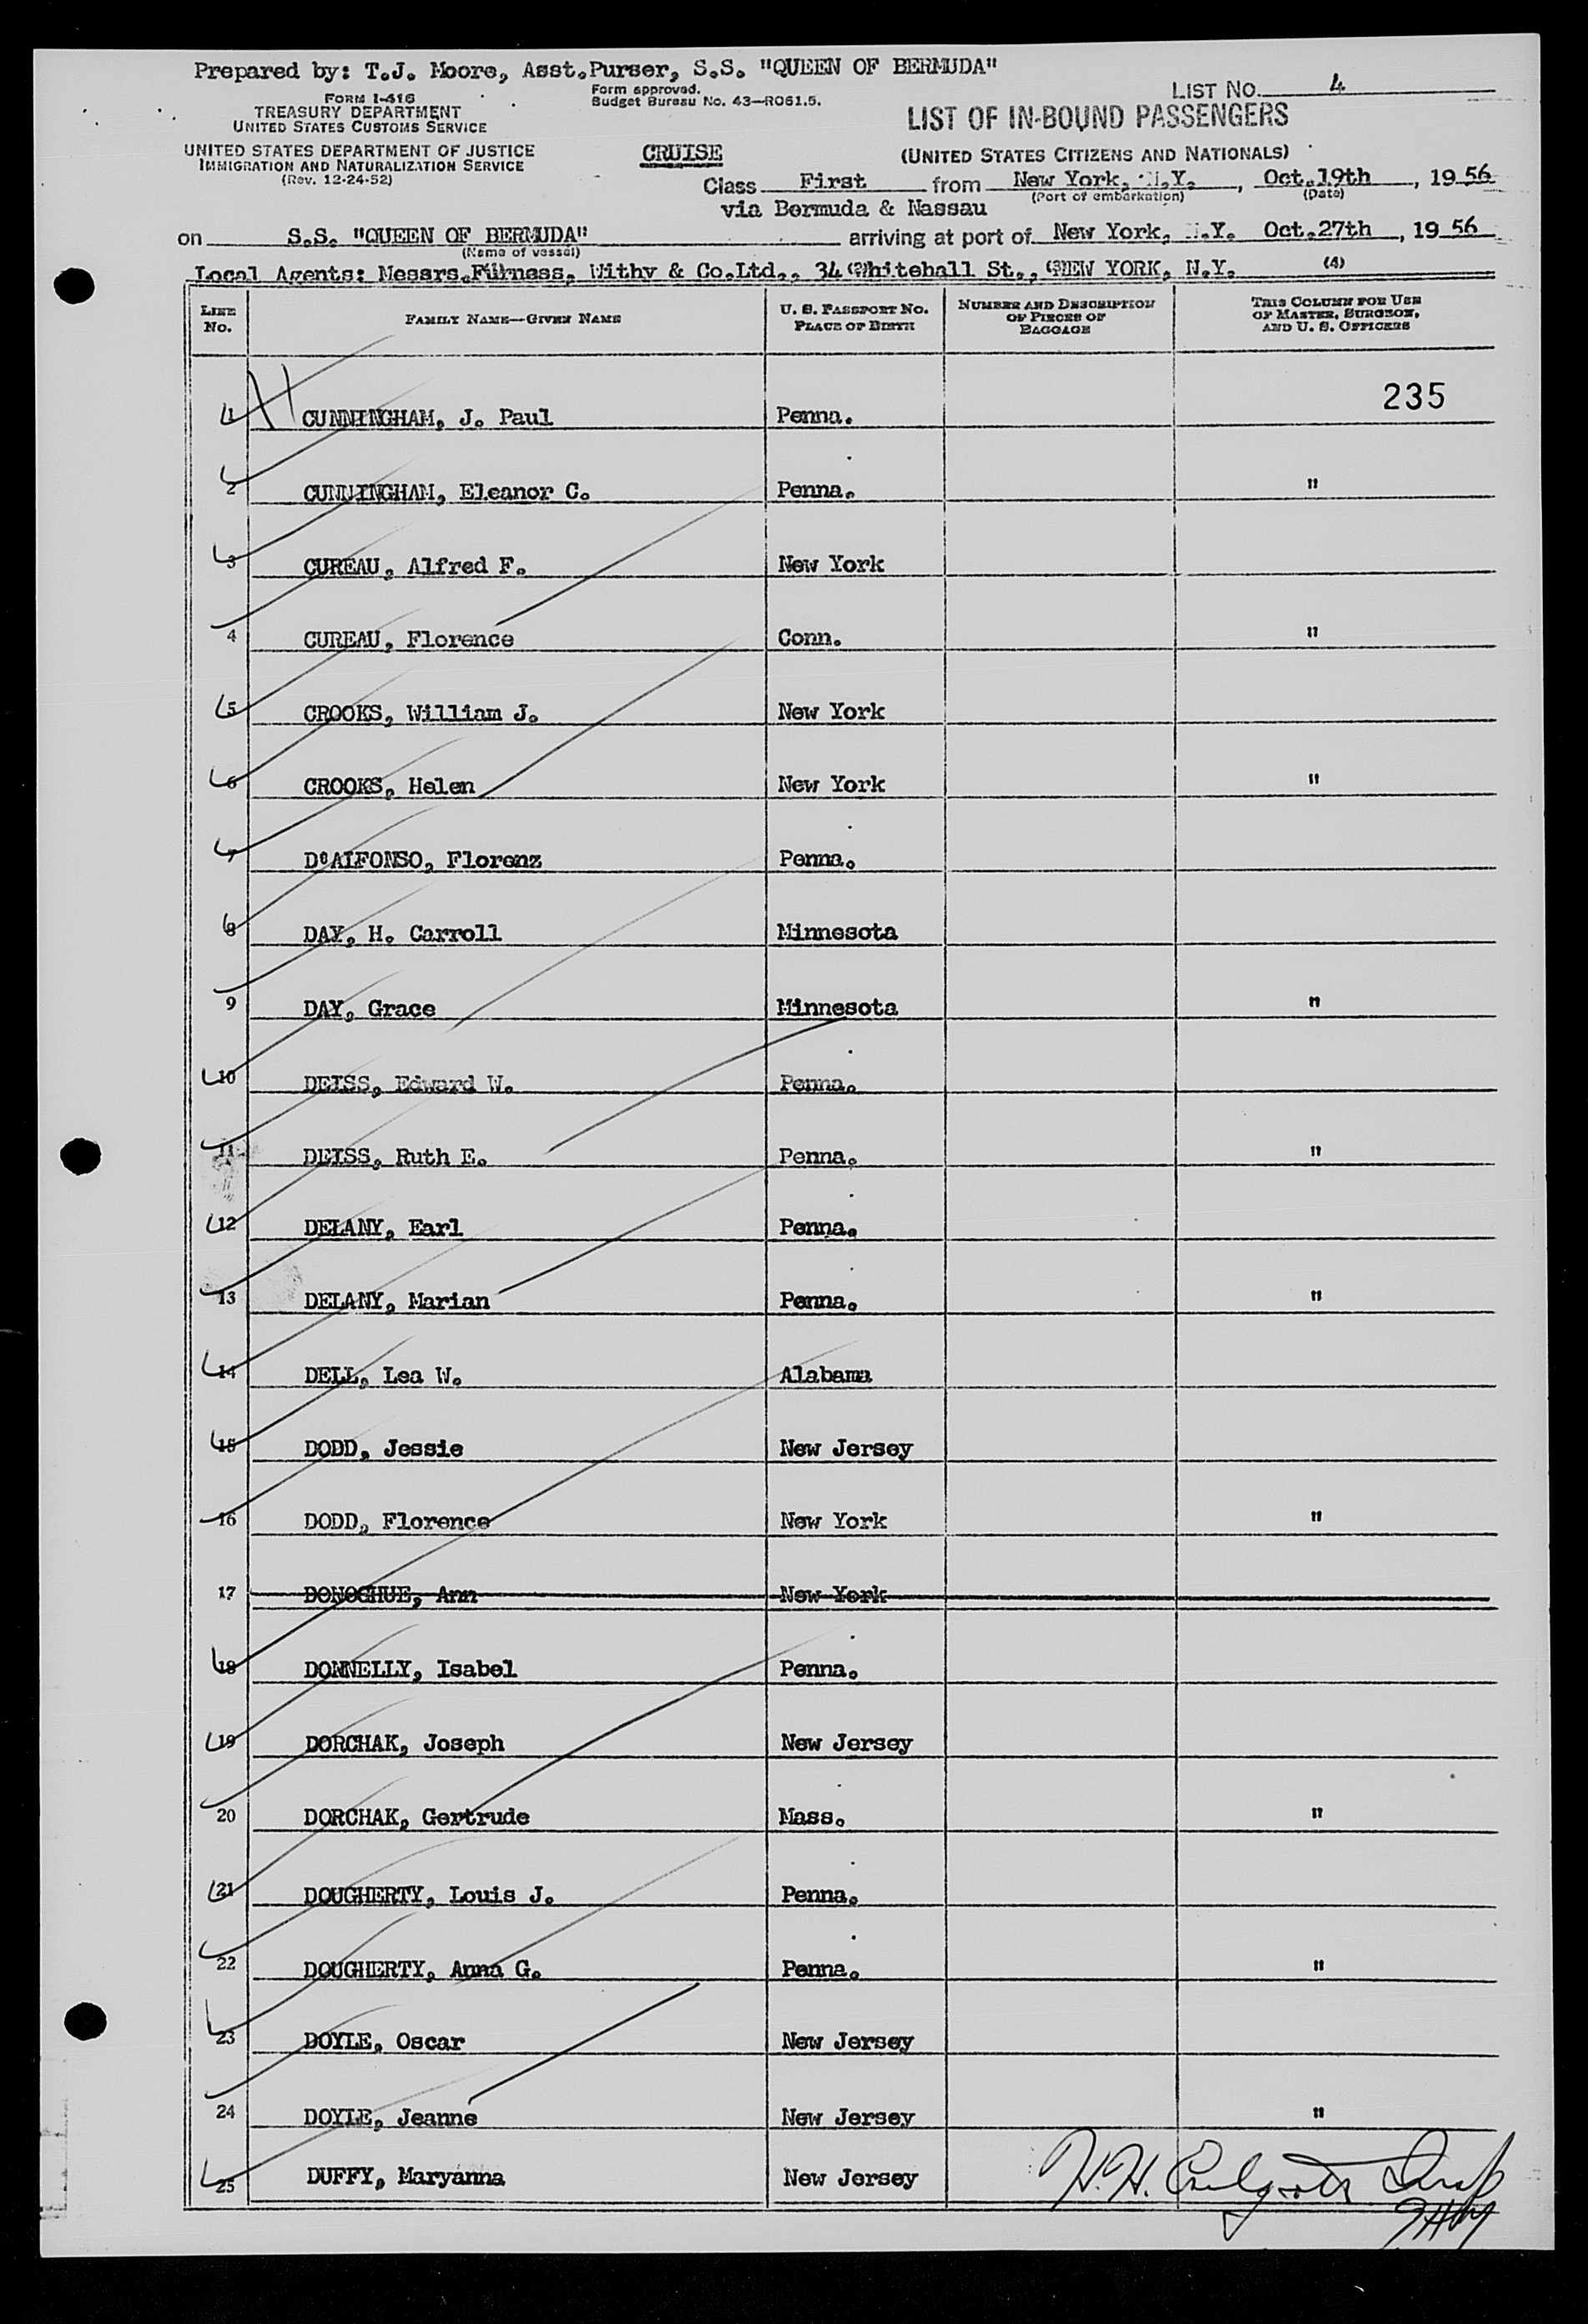 Prepared by: T.J. Moore, Asst.Purser, S.S. "QUEEN OF BERMUDA"
FORM I-416
TREASURY DEPARTMENT
UNITED STATES CUSTOMS SERVICE
UNITED STATES DEPARTMENT OF JUSTICE
IMMIGRATION AND NATURALIZATION SERVICE
(Rev. 12-24-52)
Form approved.
Budget Bureau No. 43—R061.5.
LIST NO. 4
LIST OF IN-BOUND PASSENGERS
(UNITED STATES CITIZENS AND NATIONALS)
CRUISE
Class First from New York, N.Y., Oct.19th, 1956
(Port of embarkation) (Date)
via Bermuda & Nassau
on S.S. "QUEEN OF BERMUDA" arriving at port of New York, N.Y. Oct.27th, 1956
(Name of vessel)
Local Agents: Messrs.Furness, Withy & Co.Ltd., 34 Whitehall St., NEW YORK, N.Y. (4)
LINE NO. FAMILY NAME—GIVEN NAME U. S. PASSPORT NO. PLACE OF BIRTH NUMBER AND DESCRIPTION OF PIECES OF BAGGAGE THIS COLUMN FOR USE OF MASTER, SURGEON, AND U. S. OFFICERS
1 CUNNINGHAM, J. Paul Penna. 235
2 CUNNINGHAM, Eleanor C. Penna. "
3 CUREAU, Alfred F. New York
4 CUREAU, Florence Conn. "
5 CROOKS, William J. New York
6 CROOKS, Helen New York "
7 D'ALFONSO, Florenz Penna.
8 DAY, H. Carroll Minnesota
9 DAY, Grace Minnesota "
10 DEISS, Edward W. Penna.
11 DEISS, Ruth E. Penna. "
12 DELANY, Earl Penna.
13 DELANY, Marian Penna. "
14 DELL, Lea W. Alabama
15 DODD, Jessie New Jersey
16 DODD, Florence New York "
17 DONOGHUE, Ann New York
18 DONNELLY, Isabel Penna.
19 DORCHAK, Joseph New Jersey
20 DORCHAK, Gertrude Mass. "
21 DOUGHERTY, Louis J. Penna.
22 DOUGHERTY, Anna G. Penna. "
23 DOYLE, Oscar New Jersey
24 DOYLE, Jeanne New Jersey "
25 DUFFY, Maryanna New Jersey